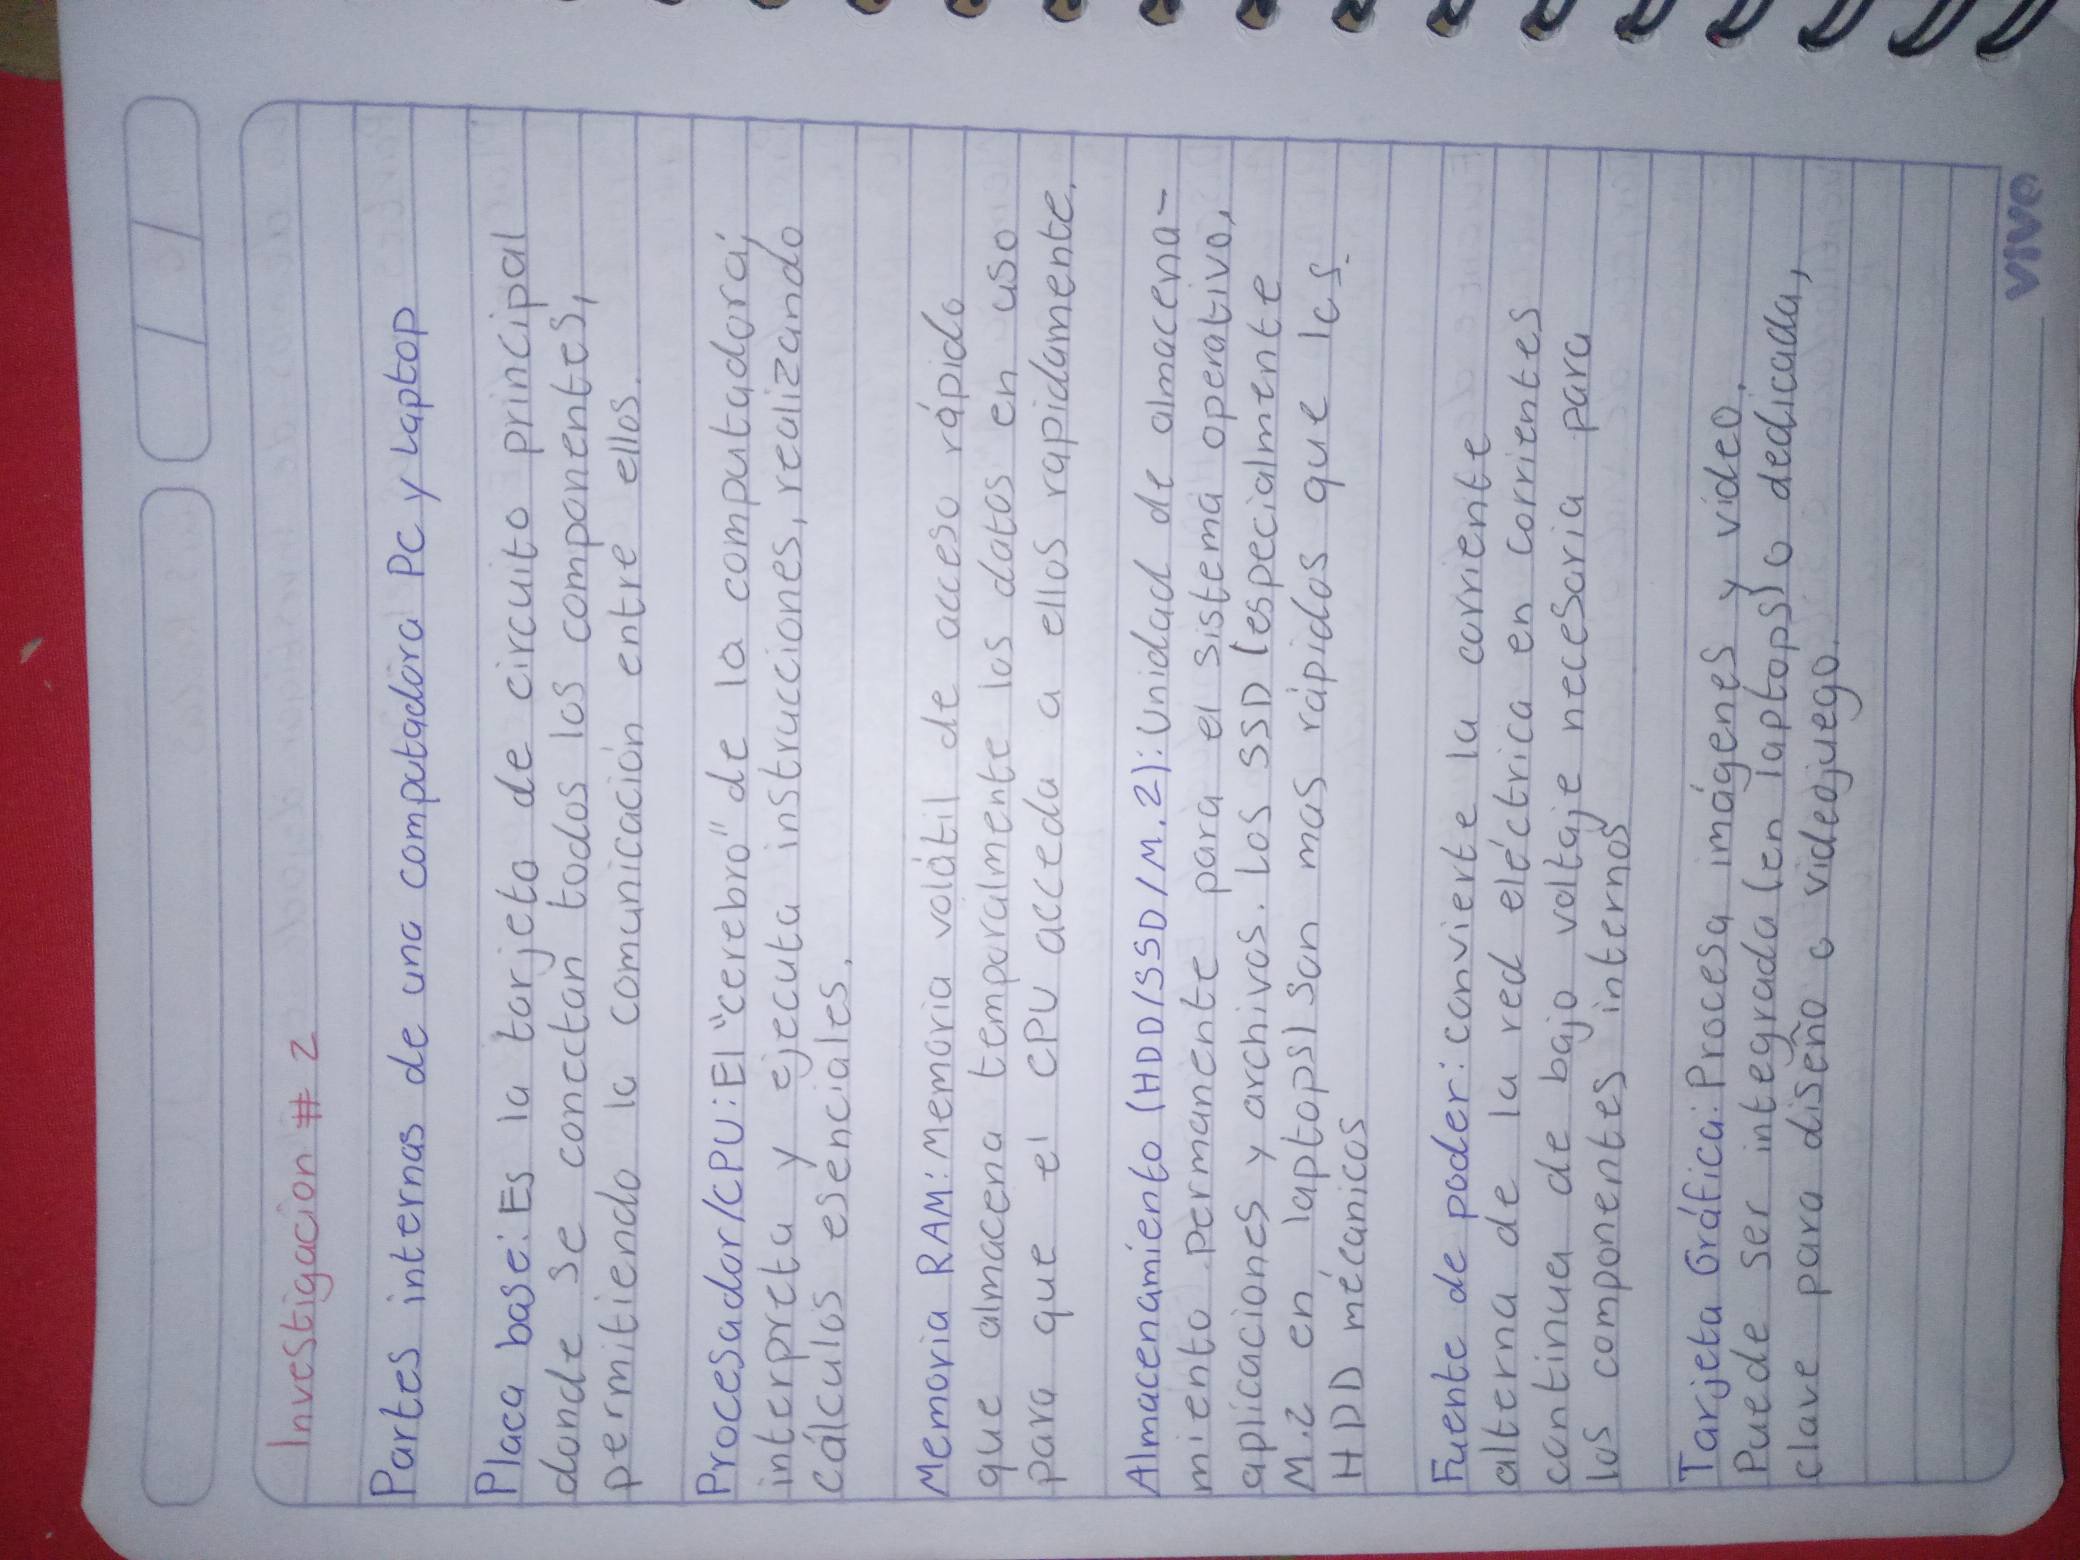 Investigacion # 2
Partes internas de una computadora PC y Laptop
Placa base: Es la tarjeta de circuito principal
donde se conectan todos los componentes,
permitiendo la comunicación entre ellos.
Procesador/CPU: El "cerebro" de la computadora;
interpreta y ejecuta instrucciones, realizando
cálculos esenciales.
Memoria RAM: Memoria volátil de acceso rápido
que almacena temporalmente los datos en uso
para que el CPU acceda a ellos rapidamente.
Almacenamiento (HDD/SSD/M.2): Unidad de almacena-
miento permanente para el sistema operativo,
aplicaciones y archivos. Los SSD (especialmente
M.2 en laptops) son mas rápidos que los
HDD mécanicos
Fuente de poder: convierte la corriente
alterna de la red eléctrica en corrientes
continua de bajo voltaje necesaria para
los componentes internos
Tarjeta Gráfica: Procesa imágenes y video.
Puede ser integrada (en laptops) o dedicada,
clave para diseño o videojuego.
vivo